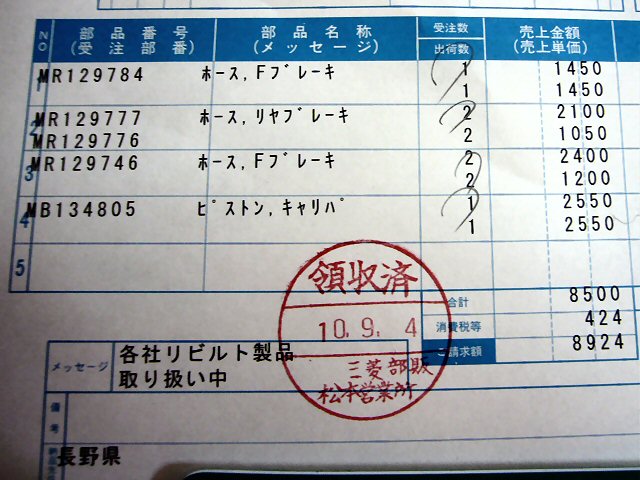 NO 部品番号 部品名称 受注数 売上金額
(受注部番) (メッセージ) 出荷数 (売上単価)
1 MR129784 ホース,Fブレーキ 1 1450
1 1450
2 MR129777 ホース,リヤブレーキ 2 2100
MR129776 2 1050
3 MR129746 ホース,Fブレーキ 2 2400
2 1200
4 MB134805 ピストン,キャリパ 1 2550
1 2550
5
領収済
10.9.4
三菱部販
松本営業所
合計 8500
消費税等 424
ご請求額 8924
メッセージ 各社リビルト製品
取り扱い中
備考
長野県